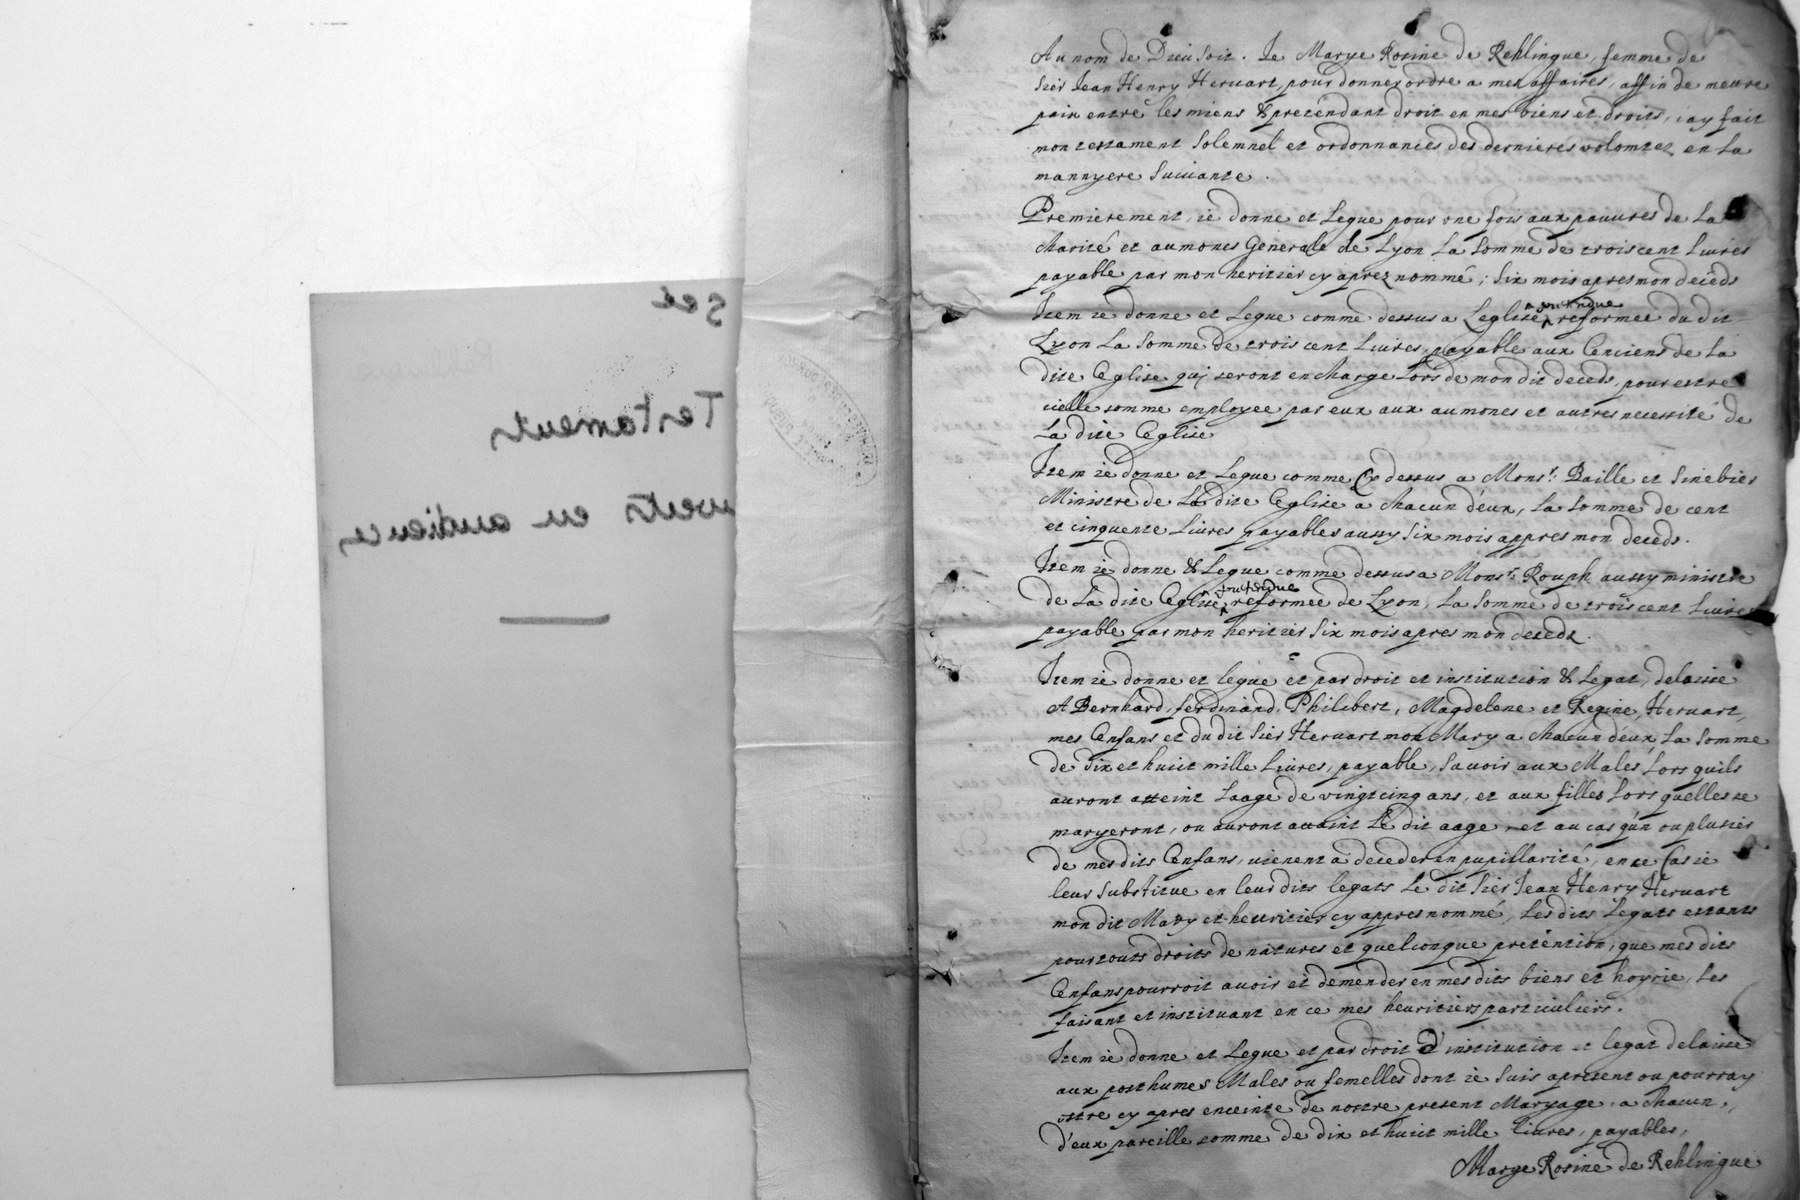 568
Testaments
ouverts en audience
Au nom de Dieu soit. Je Marye Rosine de Rehlingue, femme de
sier Jean Henry Heruart, pour donner ordre a mes affaires, affin de mettre
paix entre les miens & pretendant droit en mes biens et droits, i'ay fait
mon testament solemnel et ordonnances des dernieres volomtez en la
mannyere suiuante.
Premierement, ie donne et Legue pour vne fois aux pauures de La
charité et aumones Generale de Lyon La somme de trois cent liures
payable par mon heritier cy aprez nommé, six mois apres mon deceds
Item ie donne et Legue comme dessus a Leglise pretendue reformee du dit
Lyon La somme de trois cent Liures, payable aux Enciens de La
dite Eglise quj seront en charge Lors de mon dit deceds, pour estre
icelle somme employee par eux aux aumones et autres necessité de
La dite Eglise
Item ie donne et Legue comme Cy dessus a Monsr. Baille et
Ministre de La dite Eglise a chacun d'eux, La somme de cent
et cinquente Liures payables aussy six mois appres mon deceds.
Item ie donne & Legue comme dessus a Monsr. Rouph aussy ministre
de La dite Eglise pretendue reformee de Lyon, La somme de trois cent Liures
payable par mon heritier six mois apres mon deceds.
Item ie donne et legue et par droit et institution & Legat, delaisse
A Bernhard, ferdinand, Philibert, Magdelene et Regine, Heruart,
mes Enfans et du dit sier Heruart mon Mary a chacun deux La somme
de dix et huict mille Liures, payable, sauoir aux Males Lors quils
auront atteint Laage de vingt cinq ans, et aux filles Lors quelles se
maryeront, ou auront attaint Le dit aage, et au cas qu'n ou plusiers
de mes dits Enfans, vienent a deceder en pupillarité, en ce Cas ie
leur substitue en leur dits legats Le dit sier Jean Henry Heruart
mon dit Mary et heuritier cy appres nommé, Les dits Legats estants
pour touts droits de natures et quelconque pretention, que mes dits
Enfans pourroit auoir et demender en mes dits biens et hoyrie, Les
faisant et instituant en ce mes heuritiers particuliers.
Item ie donne et Legue et par droit d'institution et legat delaisse
aux posthumes Males ou femelles dont ie suis apresent ou pourray
estre cy apres enceinte de nostre present Maryage, a chacun,
d'eux pareille somme de dix et huict mille Liures, payables,
Marye Rosine de Rehlingue